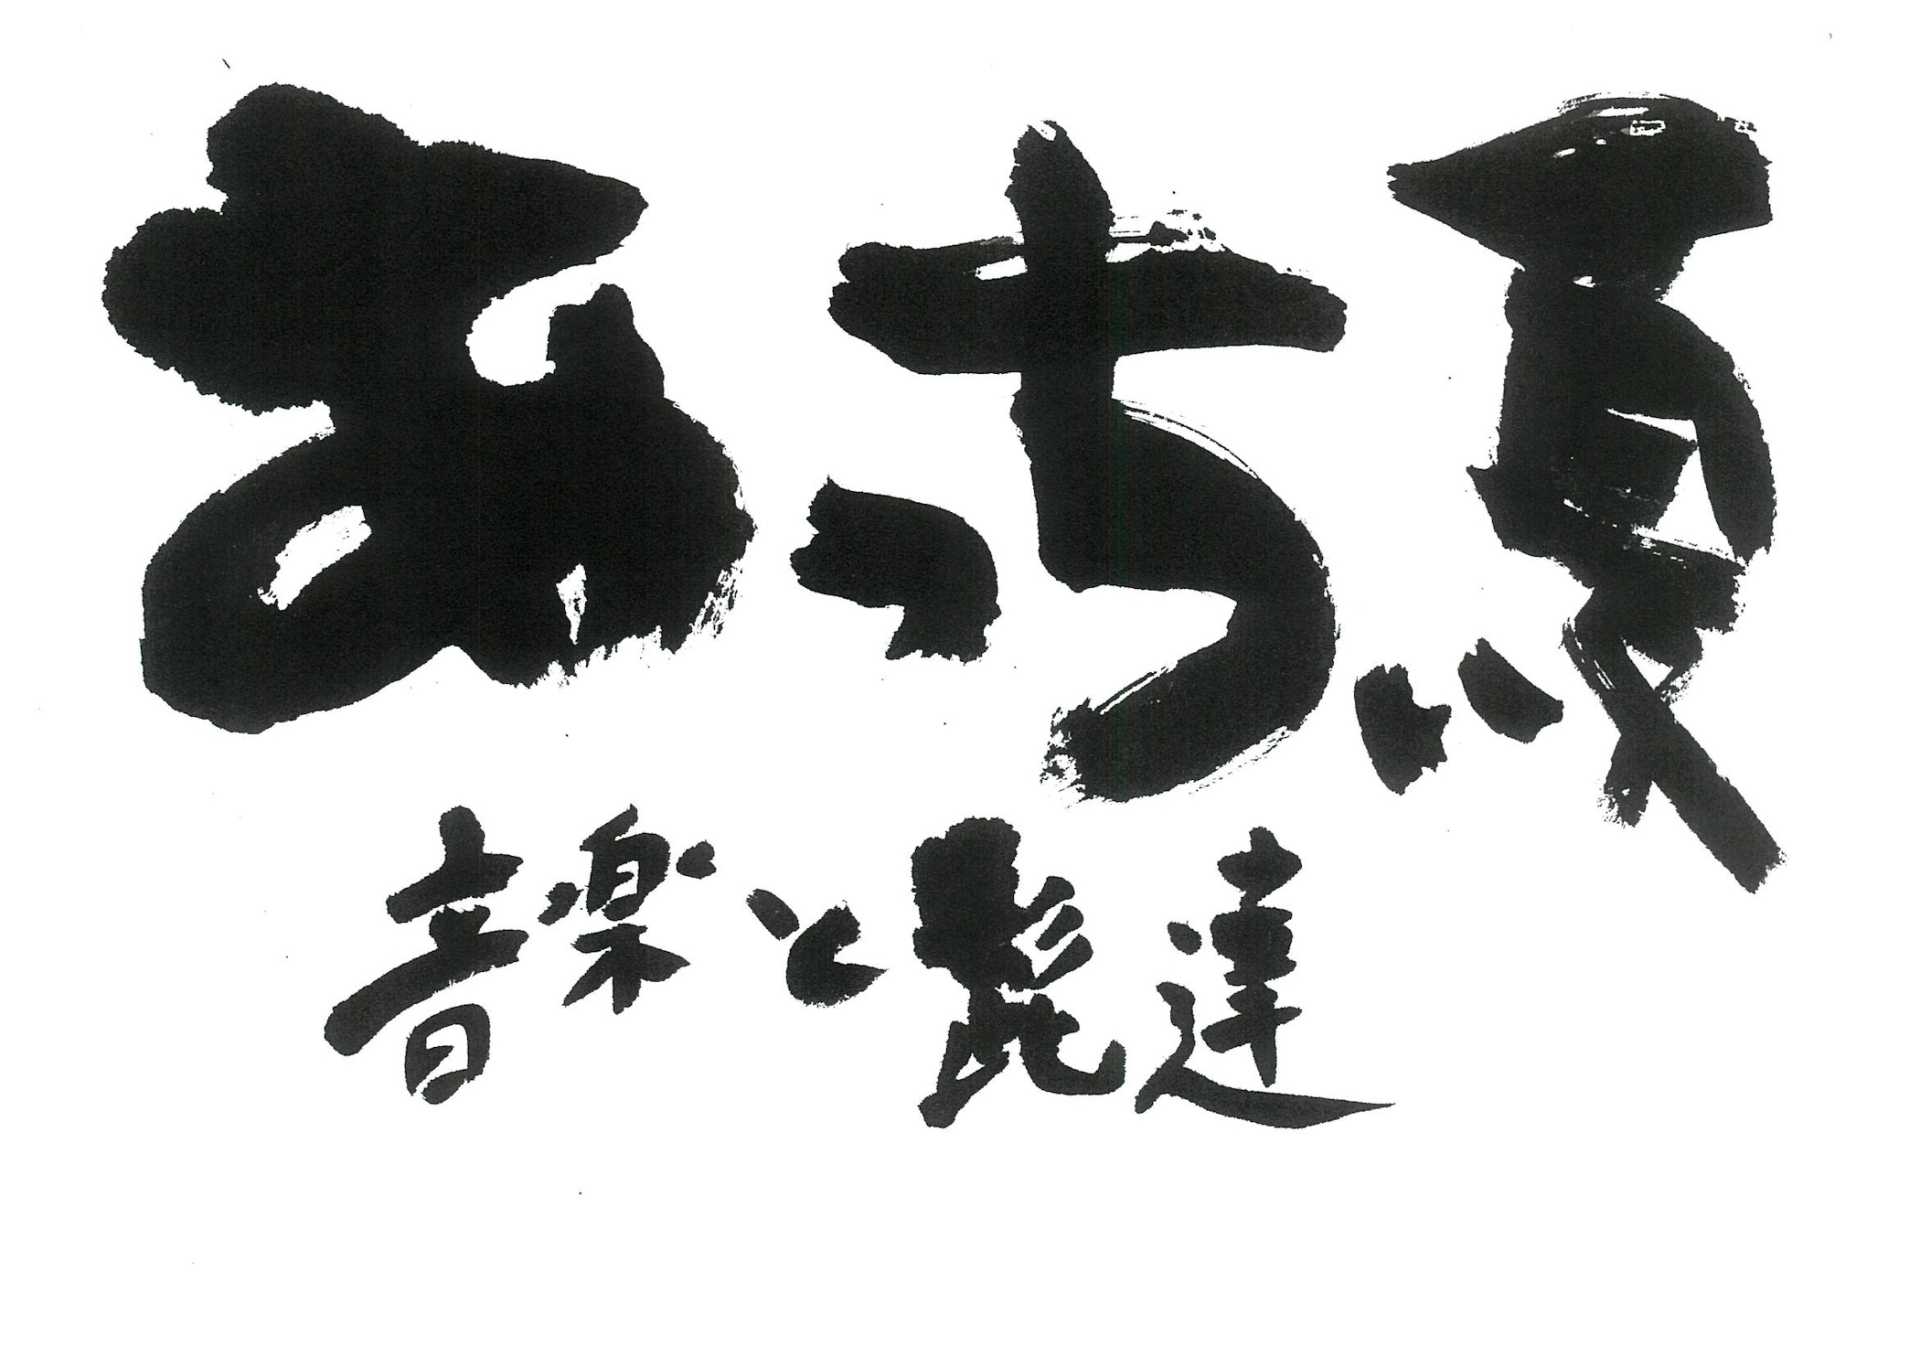 あっちぃ夏
音楽と髭達